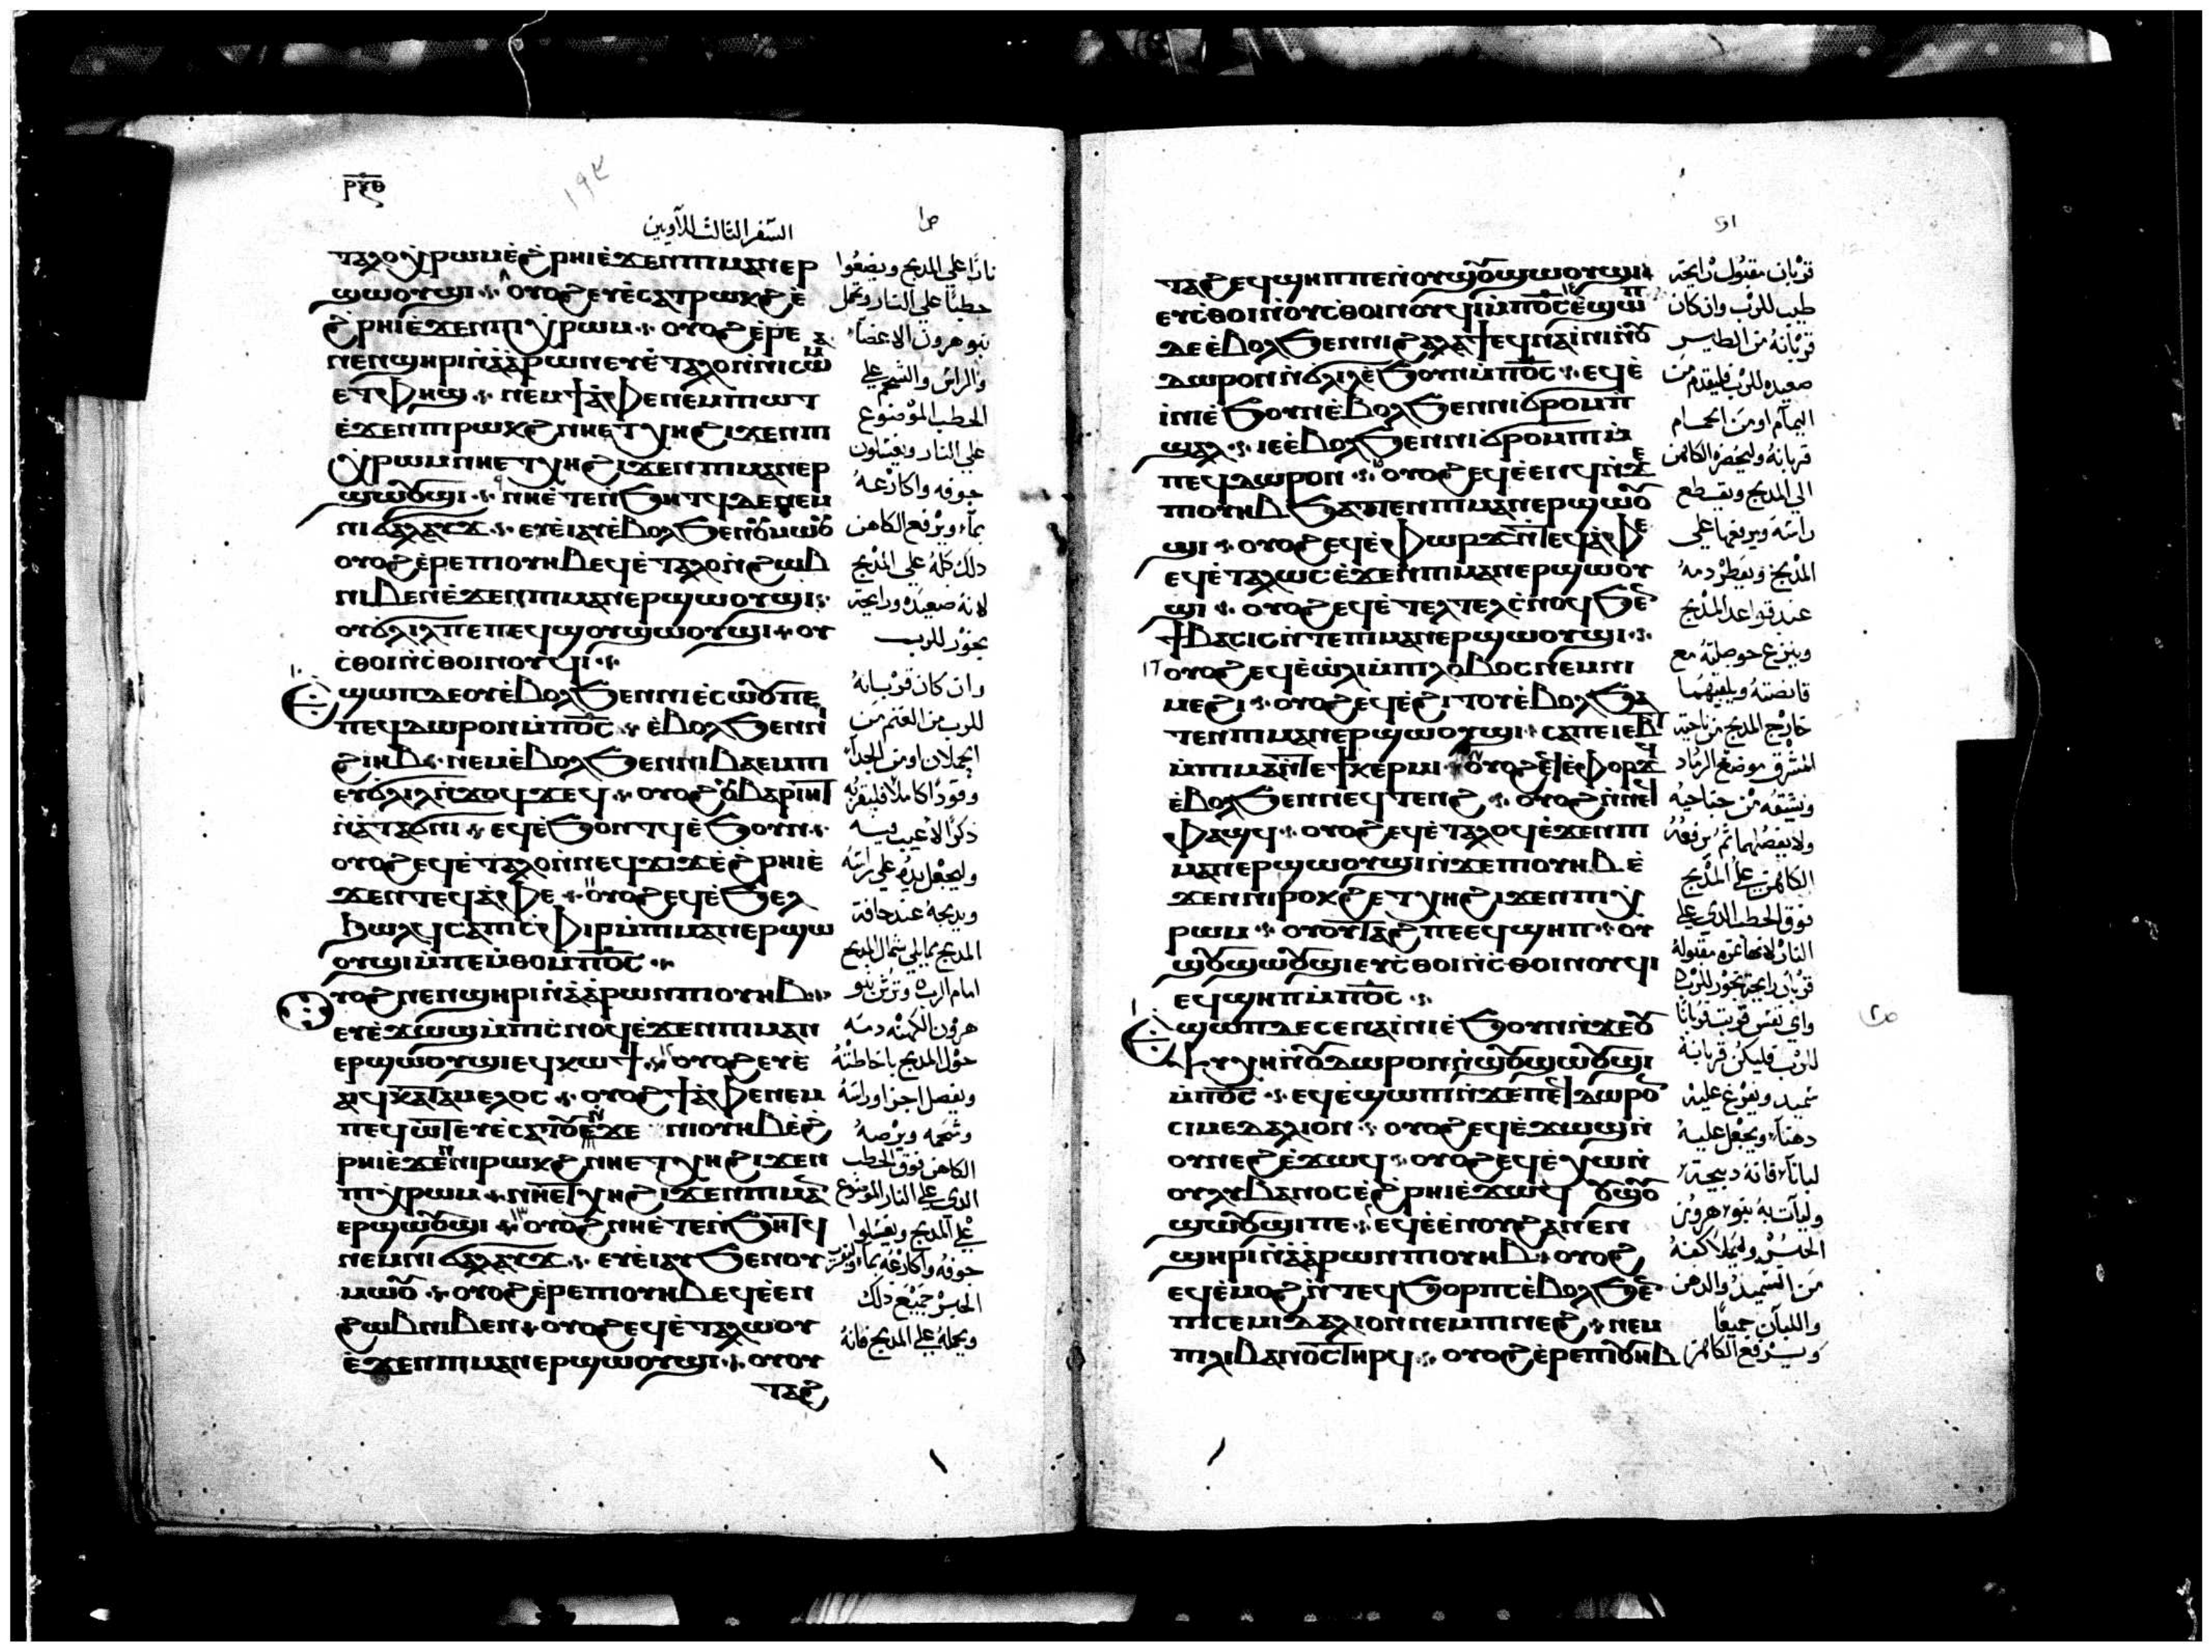 ⲣϥⲑ
١٩٤
السفر الثالث للآويين
ⲧⲁⲗⲟⲭⲣⲱⲙⲉ̀ϩ̀ⲣⲏⲓⲉ̀ϫⲉⲛⲡⲓⲙⲁⲛⲉⲣ
ϣⲱⲟⲩϣⲓ ⲟⲩⲟϩⲉⲩⲉ̀ⲥⲁⲧⲣⲱⲕϩⲉ̀
ϩ̀ⲣⲏⲓⲉ̀ϫⲉⲛⲡⲓⲭⲣⲱⲙ ⲟⲩⲟϩⲉ̀ⲣⲉ
ⲛⲉⲛϣⲏⲣⲓⲛ̀ⲁ̀ⲁ̀ⲣⲱⲛⲉⲩⲉ̀ⲧⲁⲗⲟⲛ̀ⲛⲓⲥⲱ
ⲉⲧⲫⲏϣ ⲛⲉⲙϯⲁ̀ⲫⲉⲛⲉⲙⲡⲱⲧ
ⲉ̀ϫⲉⲛⲡⲓⲣⲱⲕϩⲛⲏⲉⲧⲭⲏϩⲓϫⲉⲛⲡⲓ
ⲭⲣⲱⲙⲛⲏⲉⲧⲭⲏϩⲓϫⲉⲛⲡⲓⲙⲁⲛⲉⲣ
ϣⲱⲟⲩϣⲓ ⲛⲏⲉ̀ⲧⲉⲛ̀ϧⲏⲧϥⲇⲉⲛⲉⲙ
ⲛⲓϭⲁⲗⲁⲩϫ ⲉⲩⲉ̀ⲓⲁⲩⲉ̀ⲃⲟⲗϧⲉⲛⲟⲩⲙⲱⲟⲩ
ⲟⲩⲟϩⲉ̀ⲣⲉⲡⲓⲟⲩⲏⲃⲉϥⲉ̀ⲧⲁⲗⲟⲛ̀ϩⲱⲃ
ⲛⲓⲃⲉⲛⲉ̀ϫⲉⲛⲡⲓⲙⲁⲛⲉⲣϣⲱⲟⲩϣⲓ
ⲟⲩϭⲗⲓⲗⲡⲉⲡⲉϥϣⲟⲩϣⲱⲟⲩϣⲓ ⲟⲩ
ⲥ̀ⲑⲟⲓⲛ̀ⲥⲑⲟⲓⲛⲟⲩϥⲓ
ⲉ̀ϣⲱⲡⲇⲉⲟⲩⲉ̀ⲃⲟⲗϧⲉⲛⲛⲓⲉ̀ⲥⲱⲟⲩⲡⲉ
ⲡⲉϥⲇⲱⲣⲟⲛⲙ̀ⲡⲟ̅ⲥ̅ ⲉ̀ⲃⲟⲗϧⲉⲛⲛⲓ
ϩⲓⲏⲃ ⲛⲉⲙⲉ̀ⲃⲟⲗϧⲉⲛⲛⲓⲃⲁⲉⲙⲡⲓ
ⲉⲩϭⲗⲓⲗⲛ̀ϫⲟϥϫⲉϥ ⲟⲩⲟϩⲟⲩⲃⲁⲣⲏⲓⲧ
ⲛ̀ⲁ̀ⲧⲁϭⲛⲓ ⲉϥⲉ̀ϧⲟⲛⲧϥⲉ̀ϧⲟⲩⲛ
ⲟⲩⲟϩⲉϥⲉ̀ⲧⲁⲗⲟⲛ̀ⲛⲉϥϫⲓϫⲉ̀ϩ̀ⲣⲏⲓⲉ̀
ϫⲉⲛⲧⲉϥⲁ̀ⲫⲉ ⲟⲩⲟϩⲉϥⲉ̀ϧⲉⲗ
ϧⲱⲗϥⲥⲁⲡⲥ̀ⲫⲓⲣⲙ̀ⲡⲓⲙⲁⲛⲉⲣϣⲱ
ⲟⲩϣⲓⲙ̀ⲡⲉⲙ̀ⲑⲟⲙ̀ⲡⲟ̅ⲥ̅
ⲟⲩⲟϩⲛⲉⲛϣⲏⲣⲓⲛ̀ⲁ̀ⲁ̀ⲣⲱⲛⲡⲓⲟⲩⲏⲃ
ⲉⲩⲉ̀ϫⲱϣⲙ̀ⲡⲓⲥ̀ⲛⲟϥⲉ̀ϫⲉⲛⲡⲓⲙⲁⲛ
ⲉⲣϣⲱⲟⲩϣⲓⲉϥⲕⲱϯ ⲟⲩⲟϩⲉⲩⲉ̀
ⲫⲁϣϥⲕⲁⲧⲁⲙⲉⲗⲟⲥ ⲟⲩⲟϩϯⲁ̀ⲫⲉⲛⲉⲙ
ⲣⲏⲓⲉ̀ϫⲉⲛⲛⲓⲣⲱⲕϩⲛⲏⲉⲧⲭⲏϩⲓϫⲉⲛ
ⲡⲓⲭⲣⲱⲙ ⲛⲏⲉⲧⲭⲏϩⲓϫⲉⲛⲡⲓⲙⲁⲛ
ⲉⲣϣⲱⲟⲩϣⲓ ⲟⲩⲟϩⲛⲏⲉ̀ⲧⲉⲛ̀ϧⲏⲧϥ
ⲛⲉⲙⲛⲓϭⲁⲗⲁⲩϫ ⲉⲩⲉ̀ⲓⲁⲩϧⲉⲛⲟⲩ
ⲙⲱⲟⲩ ⲟⲩⲟϩⲉ̀ⲣⲉⲡⲓⲟⲩⲏⲃⲉϥⲉ̀ⲉⲛ
ϩⲱⲃⲛⲓⲃⲉⲛ ⲟⲩⲟϩⲉϥⲉ̀ⲧⲁⲗⲱⲟⲩ
ⲉ̀ϫⲉⲛⲡⲓⲙⲁⲛⲉⲣϣⲱⲟⲩϣⲓ ⲟⲩⲟⲩ
ⲧⲁϩ
نارًا علي المدبح ويضعوا
حطبًا علي النار وتحمل
بنو هرون الاعضا
والراس والشحم علي
الحطب الموضوع
علي النار ويغسلون
جوفه واكارعه
بماء ويرفع الكاهن
ذلك كله علي المدبح
لانه صعيده ورايحة
بخور للرب
وان كان قربانه
للرب من الغنم من
الحملان او من الجدا
وقودًا كاملاً فليقربه
ذكرًا لا عيب فيه
وليجعل يده علي راسه
ويدبحه عند حافة
المدبح مما يلي شمال المدبح
امام الرب
هرون الكهنه دمه
حول المدبح باحاطته
وشحمه
الكاهن فوق الحطب
الدي علي النار الموضوع
علي المدبح ويغسلوا
الحبر جميع ذلك
ويحمله علي المدبح فانه
ⲧⲁϩⲉϥϣⲏⲡⲡⲉⲛ̀ⲟⲩϣⲟⲩϣⲱⲟⲩϣⲓ
ⲉⲩⲥ̀ⲑⲟⲓⲛ̀ⲟⲩⲥ̀ⲑⲟⲓⲛⲟⲩϥⲓⲙ̀ⲡⲟ̅ⲥ̅ⲉ̀ϣⲱⲡ
ⲇⲉⲉ̀ⲃⲟⲗϧⲉⲛⲛⲓϩⲁⲗⲁϯⲉϥⲛⲁⲓ̀ⲛⲓⲛ̀ⲟⲩ
ⲇⲱⲣⲟⲛⲛ̀ϭⲗⲓⲗⲉ̀ϧⲟⲩⲛⲙ̀ⲡⲟ̅ⲥ̅ ⲉϥⲉ̀
ⲓⲛⲓⲉ̀ϧⲟⲩⲛⲉ̀ⲃⲟⲗϧⲉⲛⲛⲓϭⲣⲟⲙⲡ
ϣⲁⲗ ⲓⲉⲉ̀ⲃⲟⲗϧⲉⲛⲛⲓϭⲣⲟⲙⲡⲓⲙ̀
ⲡⲉϥⲇⲱⲣⲟⲛ ⲟⲩⲟϩⲉϥⲉ̀ⲉⲛϥⲛ̀ϫⲉ
ⲡⲓⲟⲩⲏⲃϧⲁⲧⲉⲛⲡⲓⲙⲁⲛⲉⲣϣⲱⲟⲩ
ϣⲓ ⲟⲩⲟϩⲉϥⲉ̀ⲫⲱⲣϫⲛ̀ⲧⲉϥⲁ̀ⲫⲉ
ⲉϥⲉ̀ⲧⲁⲗⲱⲥⲉ̀ϫⲉⲛⲡⲓⲙⲁⲛⲉⲣϣⲱⲟⲩ
ϣⲓ ⲟⲩⲟϩⲉϥⲉ̀ⲧⲉⲗⲧⲉⲗⲥ̀ⲛⲟϥϧⲉⲛ
ϯⲃⲁⲥⲓⲥⲛ̀ⲧⲉⲡⲓⲙⲁⲛⲉⲣϣⲱⲟⲩϣⲓ
ⲟⲩⲟϩⲉϥⲉ̀ⲱ̀ⲗⲓⲙ̀ⲡⲓⲗⲟⲃⲟⲥⲛⲉⲙⲛⲓ
ⲙⲉϩⲓ ⲟⲩⲟϩⲉϥⲉ̀ϩⲓⲧⲟⲩⲉ̀ⲃⲟⲗϧⲁ
ⲧⲉⲛⲡⲓⲙⲁⲛⲉⲣϣⲱⲟⲩϣⲓ ⲥⲁⲡⲉⲓⲉⲃⲧ
ⲙ̀ⲡⲓⲙⲁⲛ̀ⲧⲉϯⲕⲉⲣⲙⲓ ⲟⲩⲟϩⲉϥⲉ̀ⲫⲟⲣϫϥ
ⲉ̀ⲃⲟⲗϧⲉⲛⲛⲉϥⲧⲉⲛϩ ⲟⲩⲟϩⲛ̀ⲛⲉϥ
ⲫⲁϣϥ ⲟⲩⲟϩⲉϥⲉ̀ⲧⲁⲗⲟϥⲉ̀ϫⲉⲛⲡⲓ
ⲙⲁⲛⲉⲣϣⲱⲟⲩϣⲓⲛ̀ϫⲉⲡⲓⲟⲩⲏⲃⲉ̀
ϫⲉⲛⲛⲓⲣⲟⲕϩⲉⲧⲭⲏϩⲓϫⲉⲛⲡⲓⲭ
ⲣⲱⲙ ⲟⲩⲟⲩⲧⲁϩⲡⲉⲉϥϣⲏⲡ ⲟⲩ
ϣⲟⲩϣⲱⲟⲩϣⲓⲉⲩⲥ̀ⲑⲟⲓⲛ̀ⲥ̀ⲑⲟⲓⲛⲟⲩϥⲓ
ⲉϥϣⲏⲡⲙ̀ⲡⲟ̅ⲥ̅
ⲉ̀ϣⲱⲡⲇⲉⲥⲉⲛⲁⲓ̀ⲛⲓⲉ̀ϧⲟⲩⲛⲛ̀ϫⲉⲟⲩ
ⲯⲩⲭⲏⲛ̀ⲟⲩⲇⲱⲣⲟⲛⲛ̀ϣⲟⲩϣⲱⲟⲩϣⲓ
ⲙ̀ⲡⲟ̅ⲥ̅ ⲉϥⲉ̀ϣⲱⲡⲓⲛ̀ϫⲉⲡⲉϥⲇⲱⲣⲟⲛ
ⲥⲓⲙⲉⲇⲁⲗⲓⲟⲛ ⲟⲩⲟϩⲉϥⲉ̀ϫⲱϣⲛ̀
ⲟⲩⲛⲉϩⲉ̀ϫⲱϥ ⲟⲩⲟϩⲉϥⲉ̀ⲭⲱⲛ̀
ⲟⲩⲗⲩⲃⲁⲛⲟⲥⲉ̀ϩ̀ⲣⲏⲓⲉ̀ϫⲱϥ ⲟⲩϣⲟⲩ
ϣⲱⲟⲩϣⲓⲡⲉ ⲉϥⲉ̀ⲉ̀ⲛⲟⲩϩⲁⲛⲉⲛ
ϣⲏⲣⲓⲛ̀ⲁ̀ⲁ̀ⲣⲱⲛⲡⲓⲟⲩⲏⲃ ⲟⲩⲟϩ
ⲉϥⲉ̀ⲙⲟϩⲛ̀ⲧⲉϥϧⲟⲣⲡⲥⲉ̀ⲃⲟⲗϧⲉⲛ
ⲡⲓⲥⲉⲙⲓⲇⲁⲗⲓⲟⲛⲛⲉⲙⲡⲓⲛⲉϩ ⲛⲉⲙ
ⲡⲓⲗⲓⲃⲁⲛⲟⲥⲧⲏⲣϥ ⲟⲩⲟϩⲉ̀ⲣⲉⲡⲓⲟⲩⲏⲃ
قربان مقبول رايحة
طيب للرب وان كان
قربانه من الطير
صعيده للرب فليقدم من
اليمام او من الحمام
قربانه وليحضره الكاهن
الي المدبح ويقطع
راسه ويرفعها علي
المدبح ويقطر دمه
عند قواعد المدبح
وينزع حوصلته مع
قانصته ويلقيهما
خارج المدبح من ناحية
المشرق موضع الرماد
ويشقه من جناحيه
ولا يفصلهما ثم يرفعه
الكاهن علي المدبح
فوق الحطب الدي علي
قربان رايحة بخور للرب
واي نفس قربت قربانًا
للرب فليكن قربانه
سميد ويفرغ عليه
دهنًا ويجعل عليه
لبانًا فانه دبيحة
من السميد والدهن
واللبان جميعًا
ويرفع الكاهن